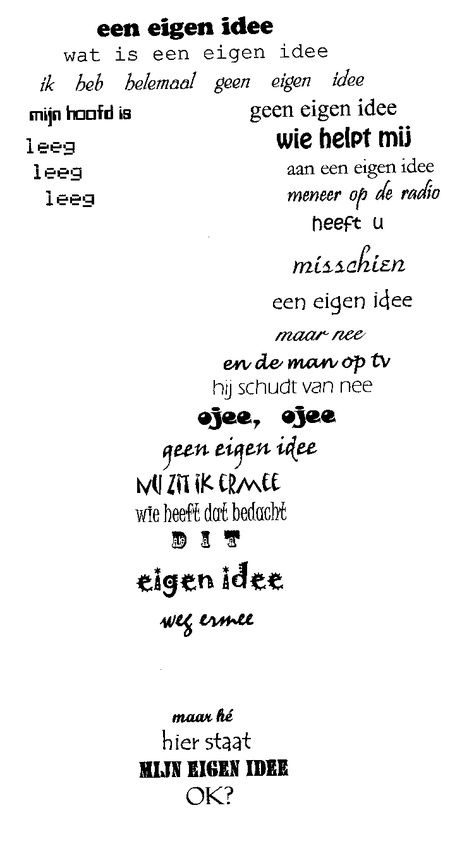 een eigen idee
wat is een eigen idee
ik heb helemaal geen eigen idee
mijn hoofd is
geen eigen idee
leeg
wie helpt mij
leeg
aan een eigen idee
leeg
meneer op de radio
heeft u
misschien
een eigen idee
maar nee
en de man op tv
hij schudt van nee
ojee, ojee
geen eigen idee
NU ZIT IK ERMEE
wie heeft dat bedacht
DIT
eigen idee
weg ermee
maar hé
hier staat
MIJN EIGEN IDEE
OK?